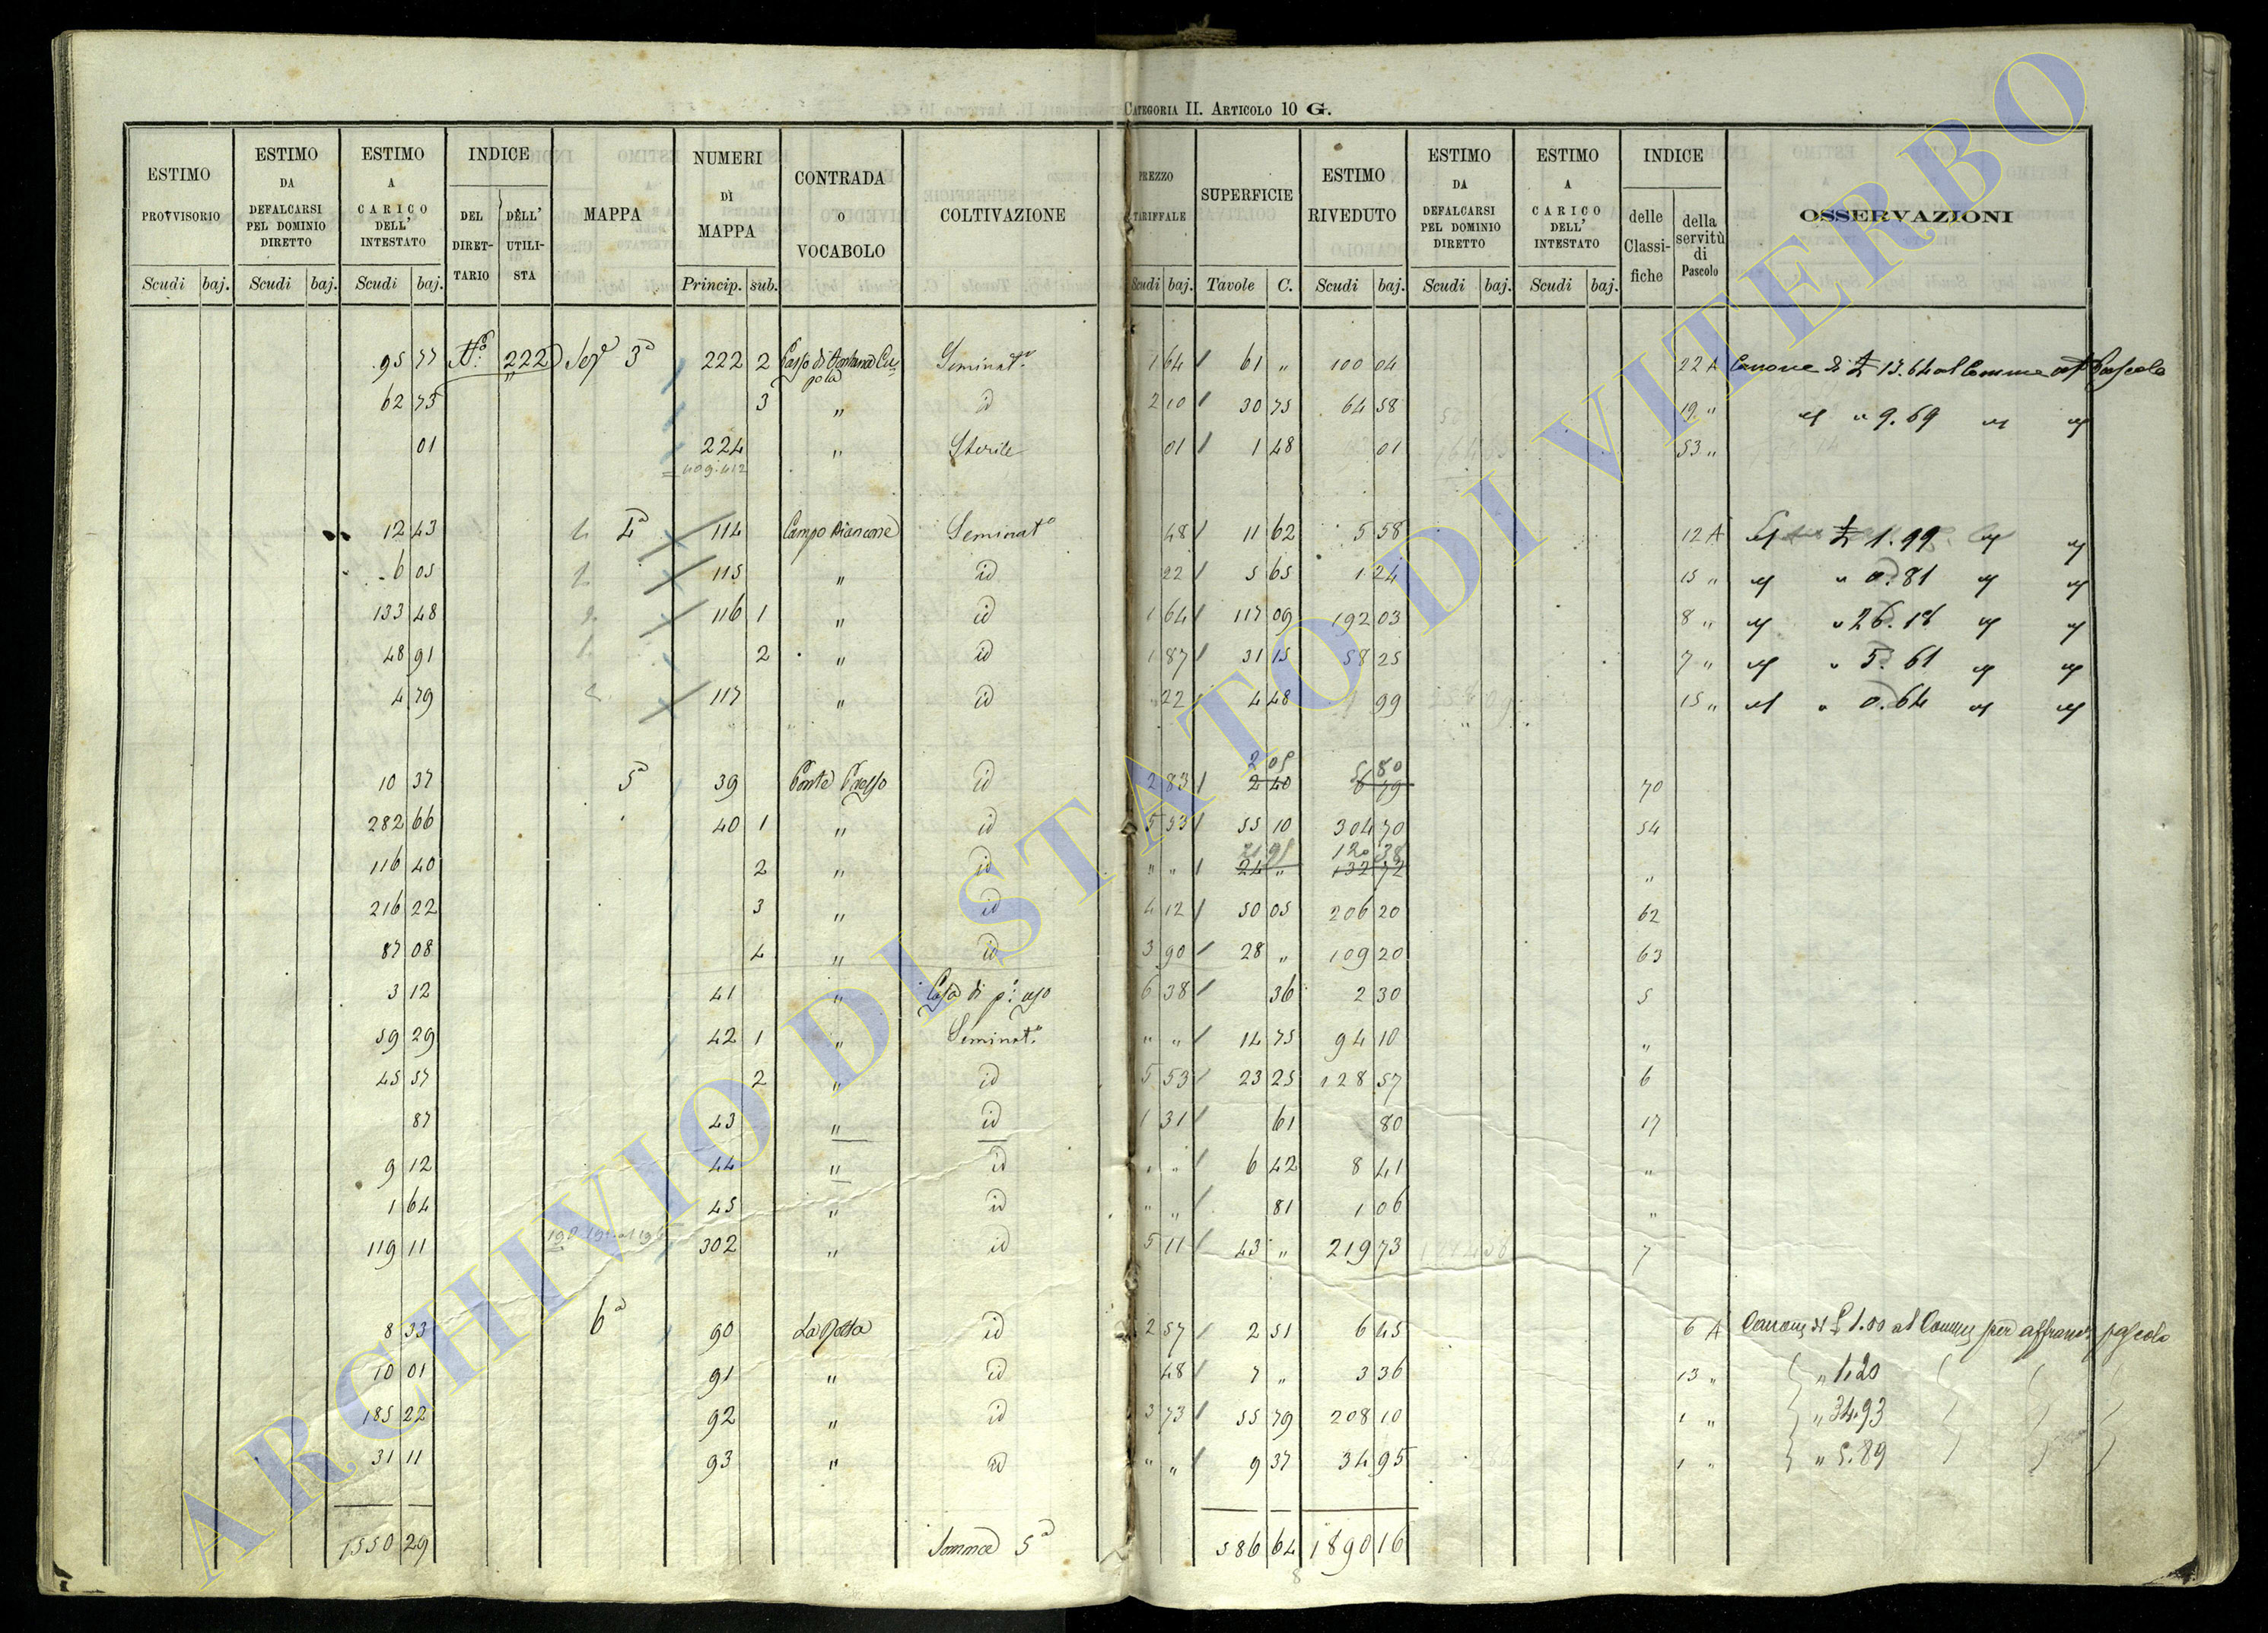 CATEGORIA II. ARTICOLO 10 G.
ESTIMO PROVVISORIO | ESTIMO DA DEFALCARSI PEL DOMINIO DIRETTO | ESTIMO A CARICO DELL' INTESTATO | INDICE DEL DIRETTARIO | DELL' UTILISTA | MAPPA | NUMERI DI MAPPA | CONTRADA O VOCABOLO | COLTIVAZIONE | PREZZO TARIFFALE | SUPERFICIE | ESTIMO RIVEDUTO | ESTIMO DA DEFALCARSI PEL DOMINIO DIRETTO | ESTIMO A CARICO DELL' INTESTATO | INDICE delle Classifiche | della servitù di Pascolo | OSSERVAZIONI
Scudi baj. | Scudi baj. | Scudi baj. | Princip. sub. | Scudi baj. | Tavole C. | Scudi baj. | Scudi baj. | Scudi baj.
95 77 | 222 | 3ª | 222 2 | Seminatº | 1 64 | 61 " | 100 04 | 22 A | Canone di 13.64 al Comune Pascolo
62 75 | 3 | " | id | 2 10 | 30 75 | 64 58 | 19 " | " 9.69
01 | 224 | " | Sterile | 01 | 1 48 | 01 | 53 "
409.412
12 43 | 4ª | 114 | Campo Biancone | Seminatº | 48 | 11 62 | 5 58 | 12 A | 1.99
6 05 | 115 | " | id | 22 | 5 65 | 1 24 | 15 " | " 0.81
133 48 | 116 1 | " | id | 1 64 | 117 09 | 192 03 | 8 " | " 26.18
48 91 | 2 | " | id | 1 87 | 31 15 | 58 25 | 7 " | " 5.61
4 79 | 117 | " | id | 22 | 4 48 | 99 | 15 " | " 0.64
2 05 | 5 80
10 37 | 5ª | 39 | id | 2 83 | 2 40 | 6 79 | 70
282 66 | 40 1 | " | id | 5 53 | 55 10 | 304 70 | 54
120 38
116 40 | 2 | " | id | " " | 24 " | 132 72 | "
216 22 | 3 | " | id | 4 12 | 50 05 | 206 20 | 62
87 08 | 4 | " | id | 3 90 | 28 " | 109 20 | 63
3 12 | 41 | " | Casa di pº uso | 6 38 | 36 | 2 30 | 5
59 29 | 42 1 | " | Seminatº | " " | 14 75 | 94 10 | "
45 57 | 2 | " | id | 5 53 | 23 25 | 128 57 | 6
87 | 43 | " | id | 1 31 | 61 | 80 | 17
9 12 | 44 | " | id | " " | 6 42 | 8 41 | "
1 64 | 45 | " | id | " " | 81 | 1 06 | "
119 11 | 302 | " | id | 5 11 | 43 " | 219 73 | 7
8 33 | 6ª | 90 | id | 2 57 | 2 51 | 6 45 | 6 A | Canone di £ 1.00 al Comune per affranc. pascolo
10 01 | 91 | " | id | 48 | 7 " | 3 36 | 13 " | " 1.20
185 22 | 92 | " | id | 3 73 | 55 79 | 208 10 | 1 " | " 34.93
31 11 | 93 | " | id | " " | 9 37 | 34 95 | 1 " | " 5.89
1550 29 | Somma 5ª | 586 64 | 1890 16
8
ARCHIVIO DI STATO DI VITERBO